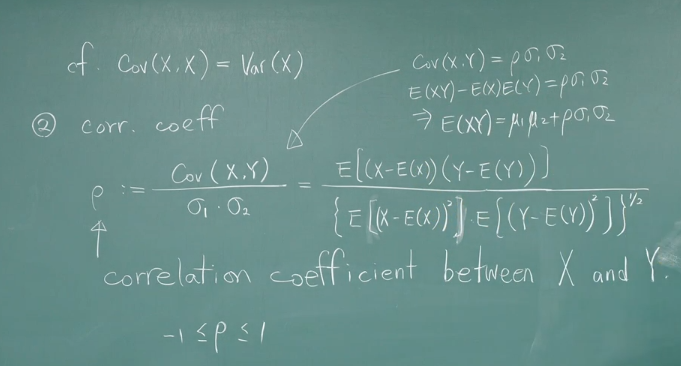 cf. Cov(X,X) = Var(X)
Cov(X.Y) = ρσ₁σ₂
E(XY)-E(X)E(Y)=ρσ₁σ₂
⇒ E(XY)=μ₁μ₂+ρσ₁σ₂
② corr. coeff
ρ := Cov(X,Y) / σ₁·σ₂ = E[(X-E(X))(Y-E(Y))] / {E[(X-E(X))²]·E[(Y-E(Y))²]}^1/2
correlation coefficient between X and Y.
-1 ≤ ρ ≤ 1